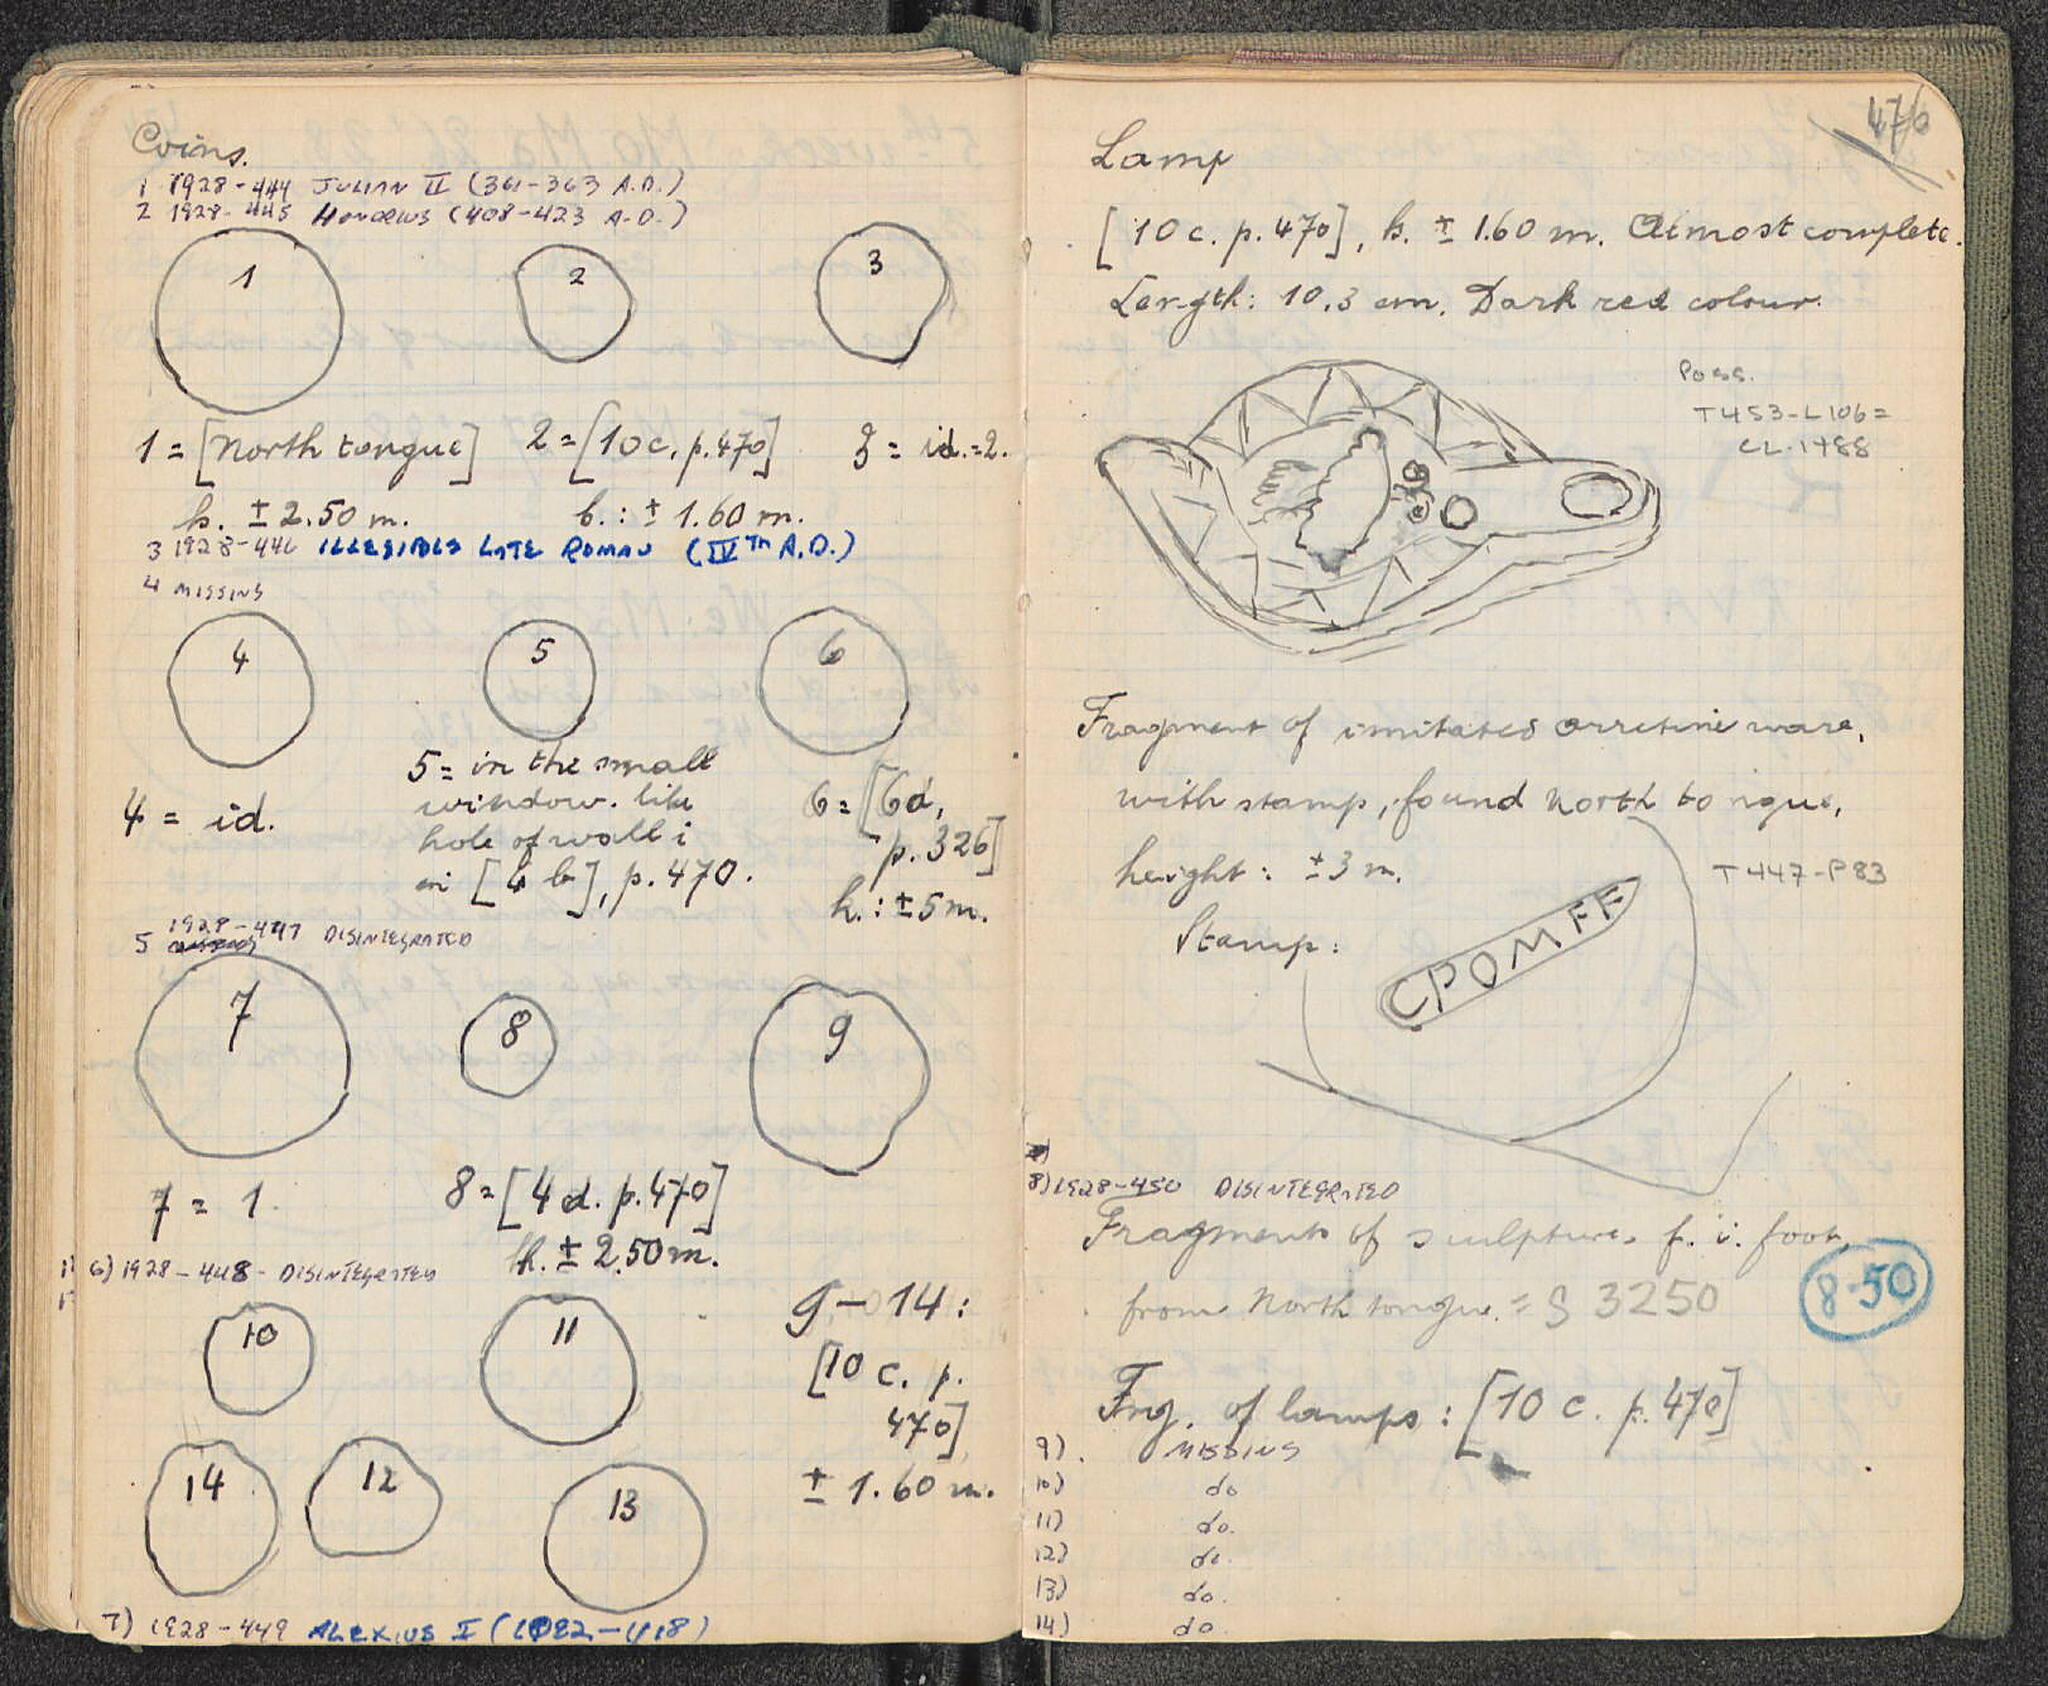 Coins.
1 1928-444 JULIAN II (361-363 A.D.)
2 1928-445 Honorius (408-423 A.D.)
1 2 3
1 = [North tongue] 2 = [10 c, p. 470] 3 = id. = 2.
h. ± 2.50 m. h. : ± 1.60 m.
3 1928-446 ILLEGIBLE LATE ROMAN (IVTH A.D.)
4 MISSING
4 5 6
5 = in the small
window. like
hole of wall i
in [4 b], p. 470.
4 = id.
6 = [6d,
p. 326]
h. : ± 5 m.
5 1928-447 DISINTEGRATED
7 8 9
7 = 1.
8 = [4 d. p. 470]
h. ± 2.50 m.
6) 1928-448- DISINTEGRATED
10 11
9 - 14 :
[10 c. p.
470]
± 1.60 m.
14 12 13
7) 1928-449 ALEXIUS I (1082-1118)
476
Lamp
[10 c. p. 470], h. ± 1.60 m. Almost complete.
Length: 10.3 cm. Dark red colour.
Poss.
T453-L106=
CL.1488
Fragment of imitated arretine ware,
with stamp, found North tongue,
height: ± 3 m.
T447-P83
Stamp:
CPOMFF
8) 1928-450 DISINTEGRATED
Fragments of sculpture, f. i. foot,
from North tongue. = S 3250
8-50
Frg. of lamps : [10 c. p. 470]
9). MISSING
10) do
11) do.
12) do.
13) do.
14) do.